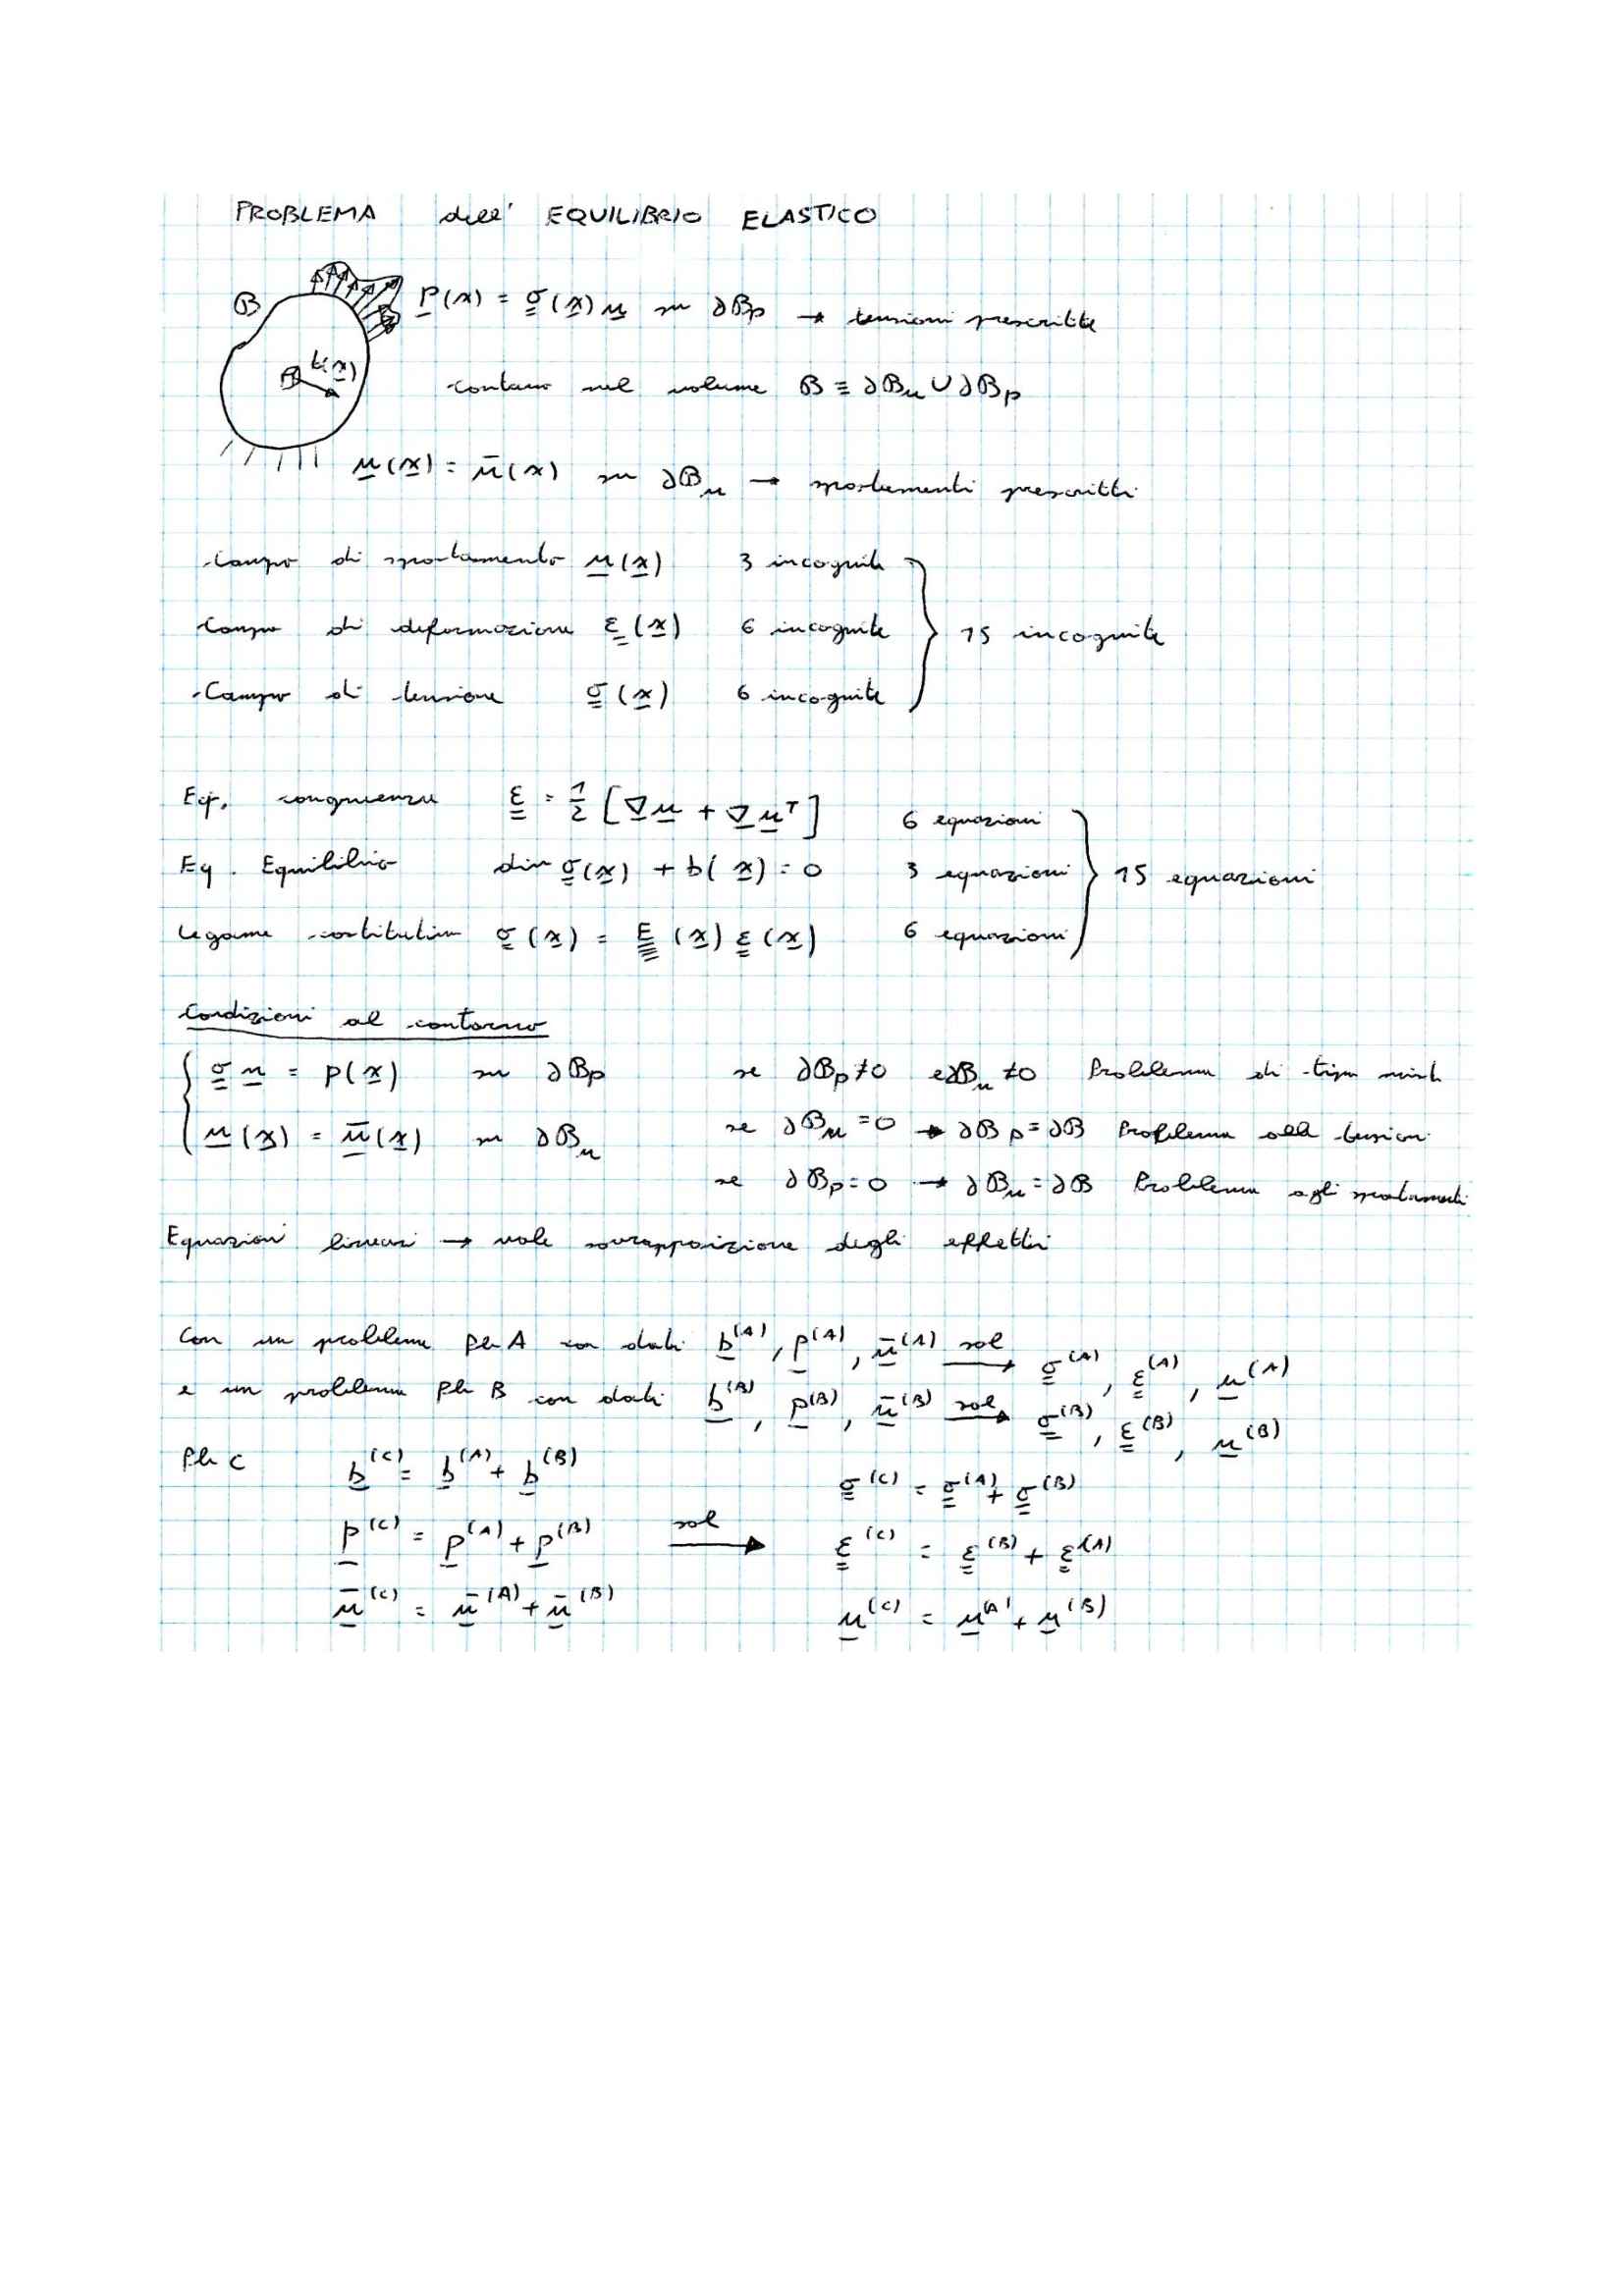 PROBLEMA dell' EQUILIBRIO ELASTICO
B p(x) = σ(x) n su ∂Bp → tensioni prescritte
b(x)
contorno nel volume B ≡ ∂Bu ∪ ∂Bp
u(x) = ū(x) su ∂Bu → spostamenti prescritti
Campo di spostamento u(x) 3 incognite
Campo di deformazione ε(x) 6 incognite } 15 incognite
Campo di tensione σ(x) 6 incognite
Eq. congruenza ε = 1/2 [∇u + ∇uᵀ] 6 equazioni
Eq. Equilibrio div σ(x) + b(x) = 0 3 equazioni } 15 equazioni
Legame costitutivo σ(x) = E(x) ε(x) 6 equazioni
Condizioni al contorno
{ σ n = p(x) su ∂Bp se ∂Bp≠0 e ∂Bu≠0 Problema di tipo misto
u(x) = ū(x) su ∂Bu se ∂Bu=0 → ∂Bp=∂B Problema alle tensioni
se ∂Bp=0 → ∂Bu=∂B Problema agli spostamenti
Equazioni lineari → vale sovrapposizione degli effetti
Con un problema Pb A con dati b^(A), p^(A), ū^(A) sol → σ^(A), ε^(A), u^(A)
e un problema Pb B con dati b^(B), p^(B), ū^(B) sol → σ^(B), ε^(B), u^(B)
Pb C b^(C) = b^(A) + b^(B) σ^(C) = σ^(A) + σ^(B)
p^(C) = p^(A) + p^(B) sol → ε^(C) = ε^(B) + ε^(A)
ū^(C) = ū^(A) + ū^(B) u^(C) = u^(A) + u^(B)